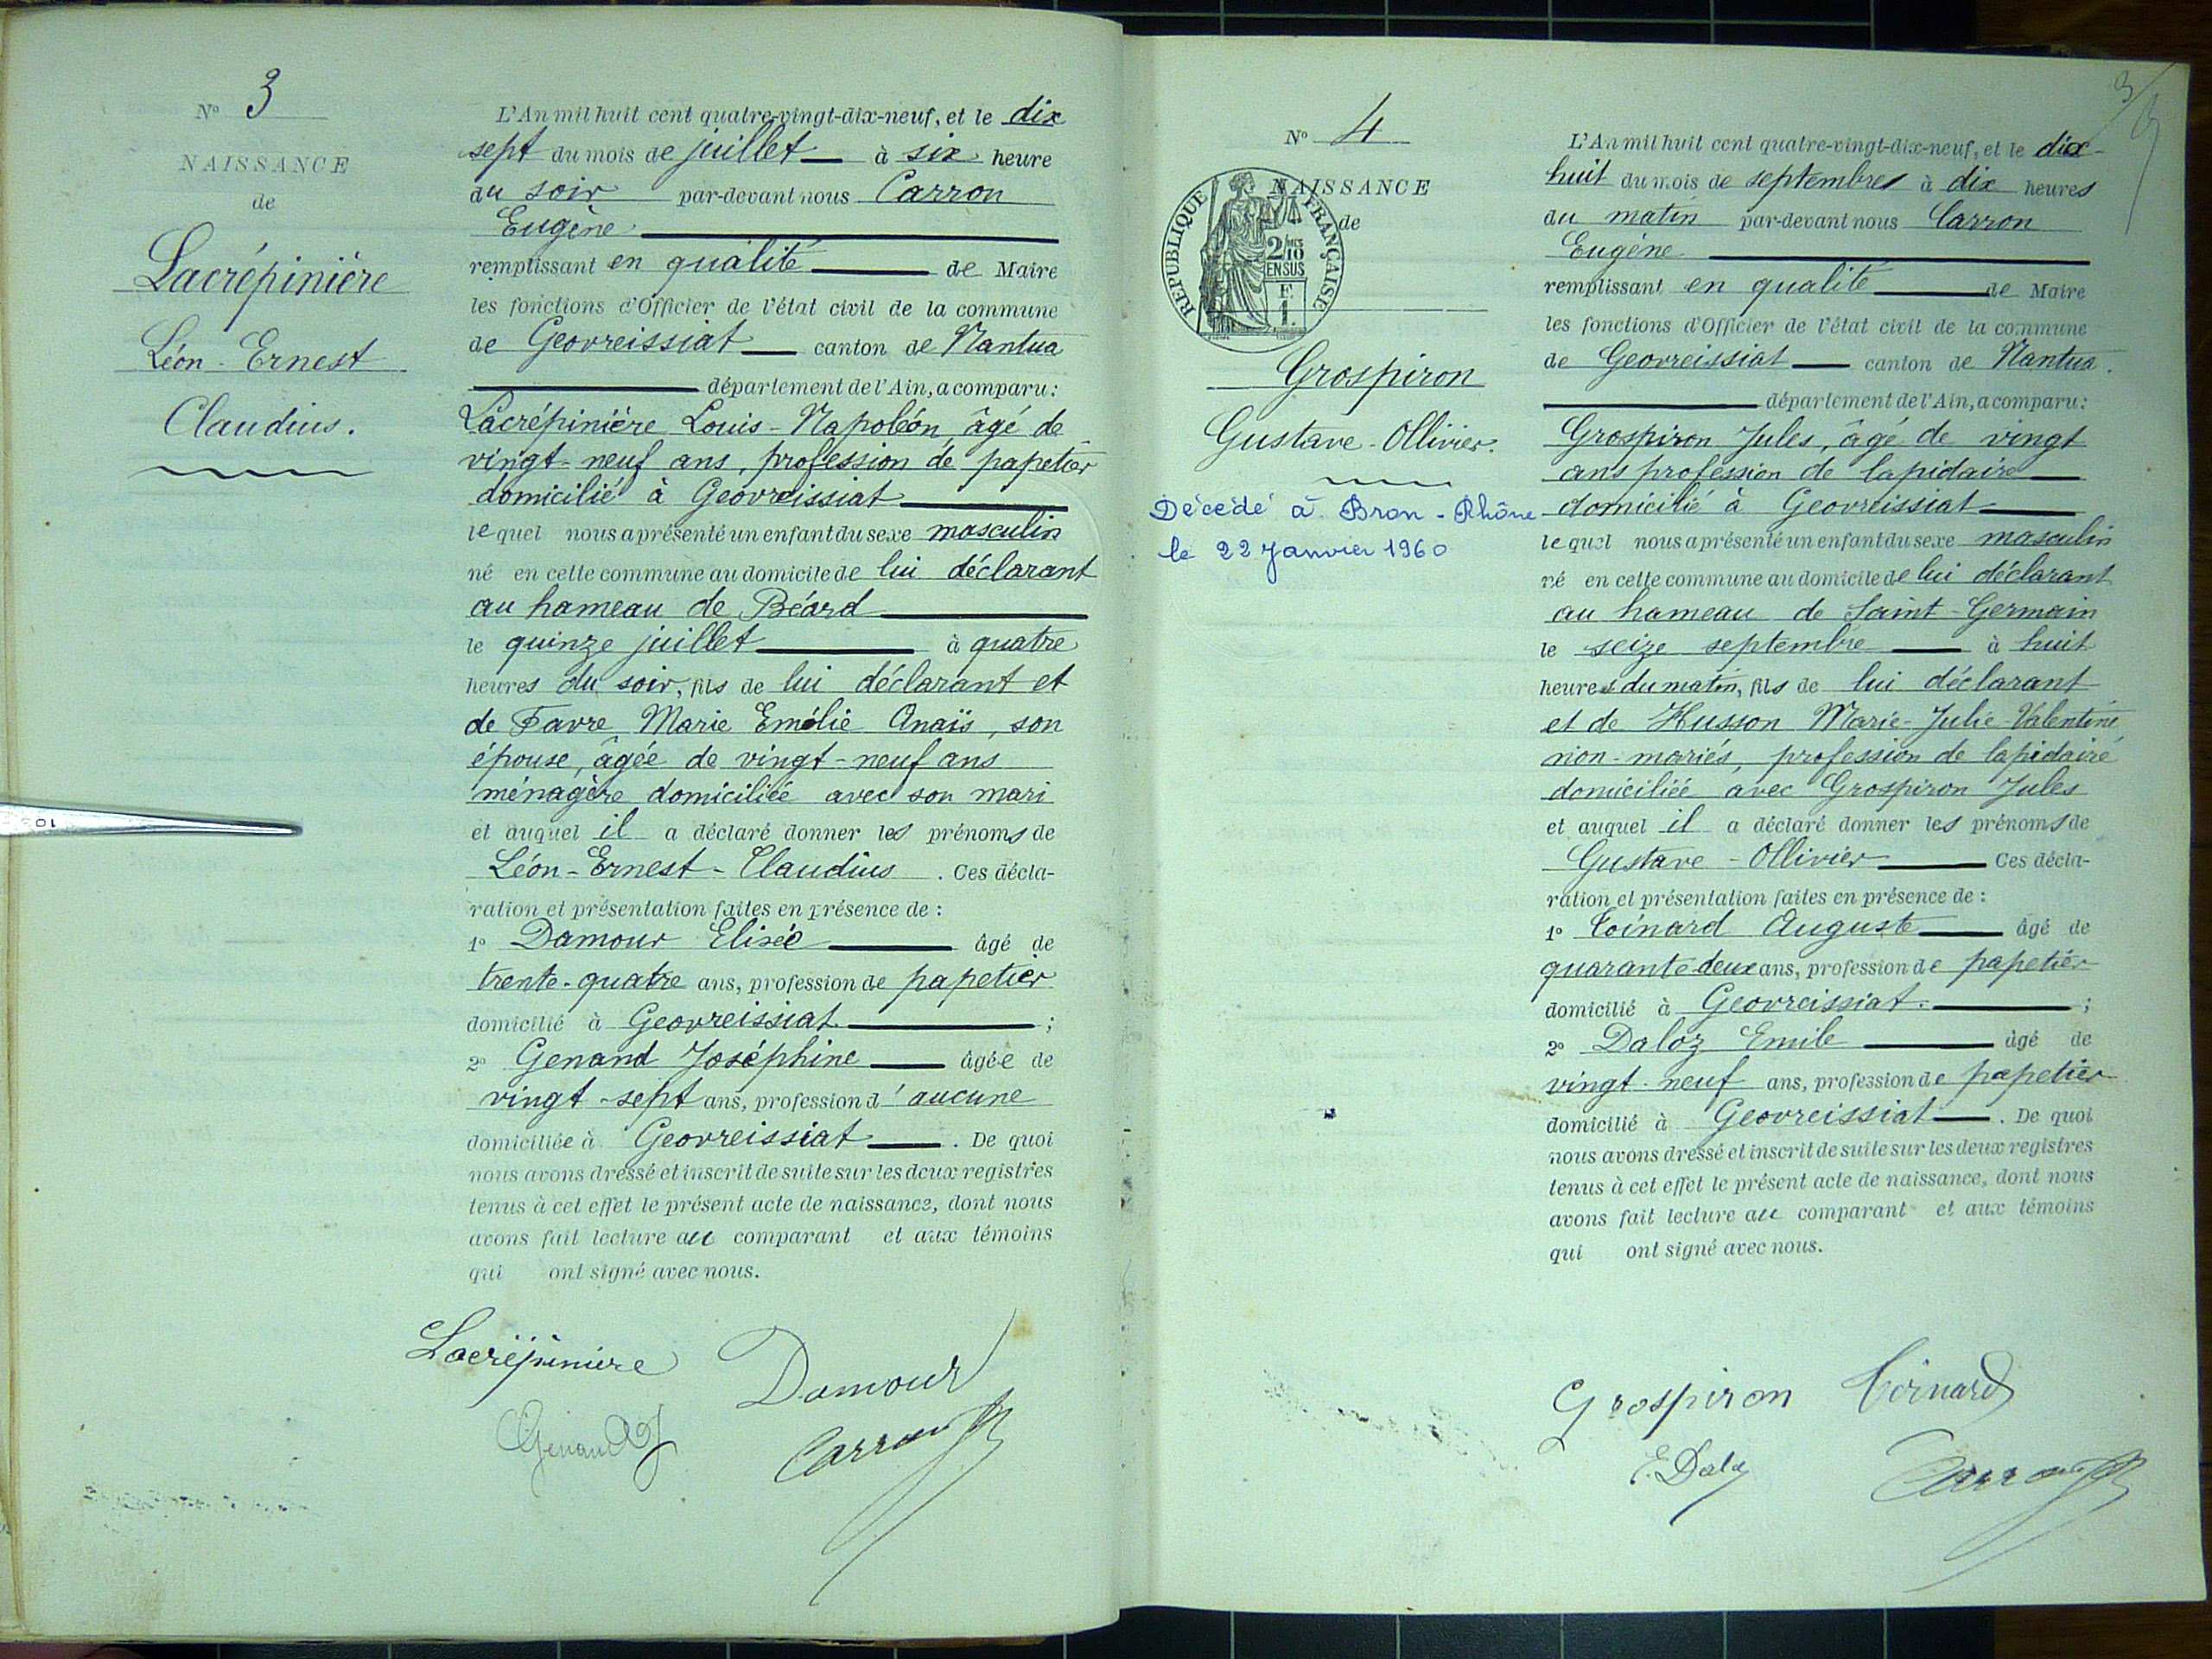 N° 3
NAISSANCE
de
Lacrépinière
Léon-Ernest
Claudius.
L'An mil huit cent quatre-vingt-dix-neuf, et le dix
sept du mois de juillet à six heure
du soir par-devant nous Carron
Eugène
remplissant en qualité de Maire
les fonctions d'Officier de l'état civil de la commune
de Geovreissiat canton de Nantua
département de l'Ain, a comparu:
Lacrépinière Louis-Napoléon, âgé de
vingt-neuf ans, profession de papetier
domicilié à Geovreissiat
lequel nous a présenté un enfant du sexe masculin
né en cette commune au domicile de lui déclarant
au hameau de Béard
le quinze juillet à quatre
heures du soir, fils de lui déclarant et
de Favre Marie Emélie Anaïs, son
épouse, âgée de vingt-neuf ans
ménagère domiciliée avec son mari
et auquel il a déclaré donner les prénoms de
Léon-Ernest-Claudius. Ces décla-
ration et présentation faites en présence de :
1° Damour Elisée âgé de
trente-quatre ans, profession de papetier
domicilié à Geovreissiat. ;
2° Genand Joséphine âgée de
vingt-sept ans, profession d'aucune
domiciliée à Geovreissiat. De quoi
nous avons dressé et inscrit de suite sur les deux registres
tenus à cet effet le présent acte de naissance, dont nous
avons fait lecture au comparant et aux témoins
qui ont signé avec nous.
Lacrépinière Damour
Genand J Carron
3
N° 4
NAISSANCE
de
REPUBLIQUE FRANÇAISE
2/10 EN SUS
F.
1.
Grospiron
Gustave-Ollivier.
Décédé à Bron-Rhône
le 22 Janvier 1960
L'An mil huit cent quatre-vingt-dix-neuf, et le dix-
huit du mois de septembres à dix heures
du matin par-devant nous Carron
Eugène
remplissant en qualité de Maire
les fonctions d'Officier de l'état civil de la commune
de Geovreissiat canton de Nantua.
département de l'Ain, a comparu:
Grospiron Jules, âgé de vingt
ans profession de lapidaire
domicilié à Geovreissiat
lequel nous a présenté un enfant du sexe masculin
né en cette commune au domicile de lui déclarant
au hameau de Saint-Germain
le seize septembre à huit
heures du matin, fils de lui déclarant
et de Husson Marie-Julie-Valentine
non-mariés, profession de lapidaire
domiciliée avec Grospiron Jules
et auquel il a déclaré donner les prénoms de
Gustave-Ollivier Ces décla-
ration et présentation faites en présence de :
1° Coinard Auguste âgé de
quarante-deux ans, profession de papetier
domicilié à Geovreissiat. ;
2° Daloz Emile âgé de
vingt-neuf ans, profession de papetier
domicilié à Geovreissiat. De quoi
nous avons dressé et inscrit de suite sur les deux registres
tenus à cet effet le présent acte de naissance, dont nous
avons fait lecture au comparant et aux témoins
qui ont signé avec nous.
Grospiron Coinard
E. Daloz Carron